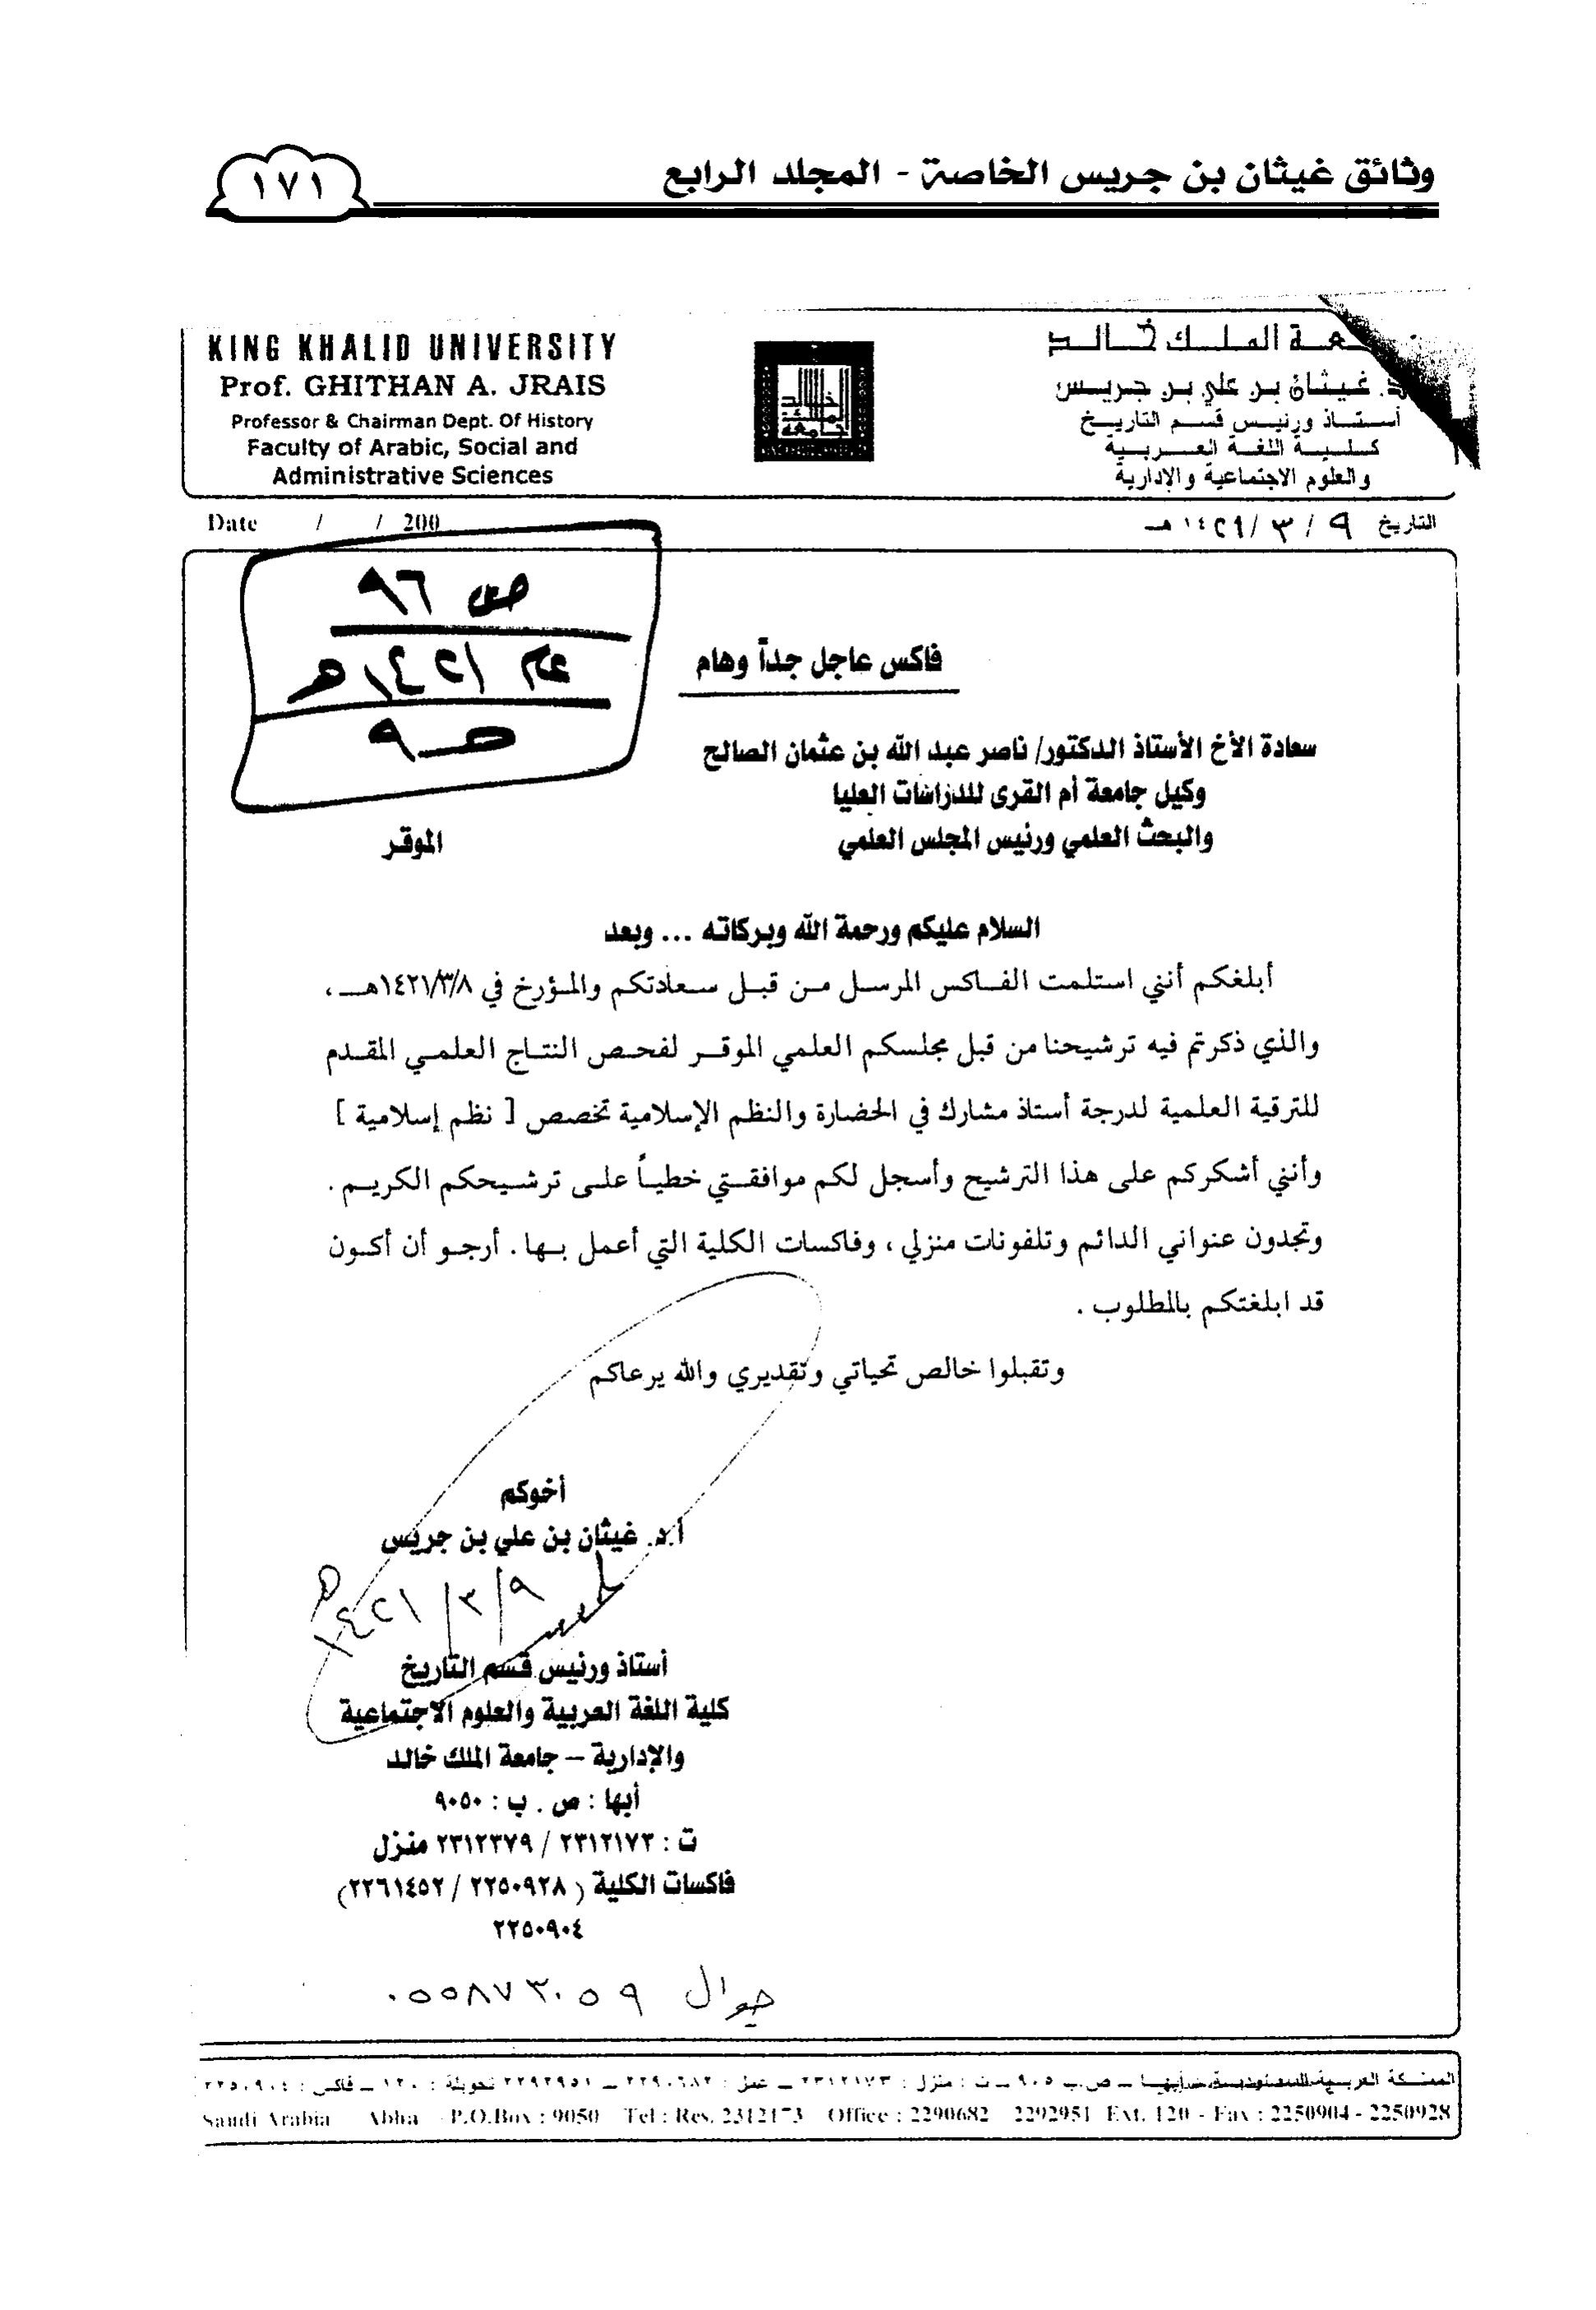 وثائق غيثان بن جريس الخاصة - المجلد الرابع
١٧١
KING KHALID UNIVERSITY
Prof. GHITHAN A. JRAIS
Professor & Chairman Dept. Of History
Faculty of Arabic, Social and
Administrative Sciences
ـعـة الملـك خـالـد
د. غيثان بن علي بن جريس
أستاذ ورئيس قسم التاريخ
كلية اللغة العربية
والعلوم الاجتماعية والإدارية
Date / / 200
التاريخ ٩ / ٣ / ١٤٢١ هـ
ص ٩٦
١٤٢١ هـ
ص ٩
فاكس عاجل جداً وهام
سعادة الأخ الأستاذ الدكتور/ ناصر عبد الله بن عثمان الصالح
وكيل جامعة أم القرى للدراسات العليا
والبحث العلمي ورئيس المجلس العلمي الموقر
السلام عليكم ورحمة الله وبركاته ... وبعد
أبلغكم أنني استلمت الفاكس المرسل من قبل سعادتكم والمؤرخ في ١٤٢١/٣/٨هـ ،
والذي ذكرتم فيه ترشيحنا من قبل مجلسكم العلمي الموقر لفحص النتاج العلمي المقدم
للترقية العلمية لدرجة أستاذ مشارك في الحضارة والنظم الإسلامية تخصص [ نظم إسلامية ]
وأنني أشكركم على هذا الترشيح وأسجل لكم موافقتي خطياً على ترشيحكم الكريم .
وتجدون عنواني الدائم وتلفونات منزلي ، وفاكسات الكلية التي أعمل بها . أرجو أن أكون
قد ابلغتكم بالمطلوب .
وتقبلوا خالص تحياتي وتقديري والله يرعاكم
أخوكم
أ.د. غيثان بن علي بن جريس
٩ / ٣ / ١٤٢١ هـ
أستاذ ورئيس قسم التاريخ
كلية اللغة العربية والعلوم الاجتماعية
والإدارية – جامعة الملك خالد
أبها : ص . ب : ٩٠٥٠
ت : ٢٣١٢١٧٣ / ٢٣١٢٣٧٩ منزل
فاكسات الكلية ( ٢٢٥٠٩٢٨ / ٢٢٦١٤٥٢)
٢٢٥٠٩٠٤
جوال ٠٥٥٨٧٣٠٥٩
المملكة العربية السعودية - أبها ـ ص.ب ٩٠٥ ـ ت : منزل : ٢٣١٢١٧٣ ـ عمل : ٢٢٩٠٦٨٢ ـ ٢٢٩٢٩٥١ تحويلة : ١٢٠ ـ فاكس : ٢٢٥٠٩٠٤
Saudi Arabia Abha - P.O.Box : 9050 Tel : Res. 2312173 Office : 2290682 2292951 Ext. 120 - Fax : 2250904 - 2250928